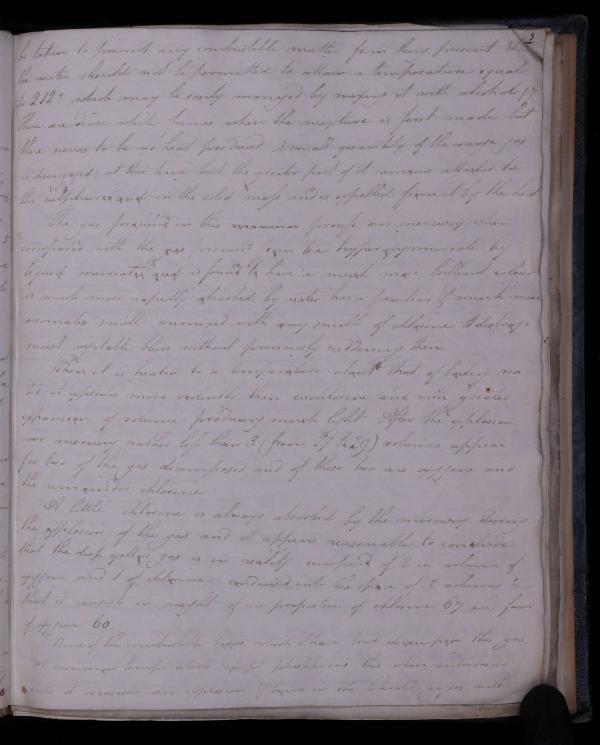 3
be taken to prevent any combustible matter from being present &
the water should not be permitted to attain a temperature equal
to 212° which may be easily managed by mixing it with alcohol
there are dense white fumes when the mixture is first made but
there seems to be no heat produced A small quantity of the orange gas
is disengaged at this time but the greater part of it remains attached to
the sulphuric acid in the solid mass and is expelled from it by the heat
The gas procured in this process over mercury when
compared with the gas procured from the hyperoxymuriate by
liquid muriatic acid is found to have a much more brilliant colour
is much more rapidly absorbed by water has a peculiar & much more
aromatic smell unmixed with any smell of chlorine It destroys
moist vegetable blues without previously reddening them
When it is heated to a temperature about that of boiling wa-
ter it explodes more violently than euchlorine and with greater
expansion of volume producing much light After the explosion
over mercury rather less than 3 (from 2,7 to 2,9) volumes appear
for two of the gas decomposed and of these two are oxygene and
the remainder chlorine
A little chlorine is always absorbed by the mercury during
the explosion of the gas and it appears reasonable to conclude
that the deep yellow gas is in reality composed of 2 in volume of
oxygene and 1 of chlorine condensed into the space of 2 volumes &
that it consists in weight of one proportion of chlorine 67 and four
of oxygene 60.
None of the combustible bodies which I have tried decompose this gas
at common temperatures except phosphorus this when introduced
into it occasions an explosion & burns in the liberated gases with